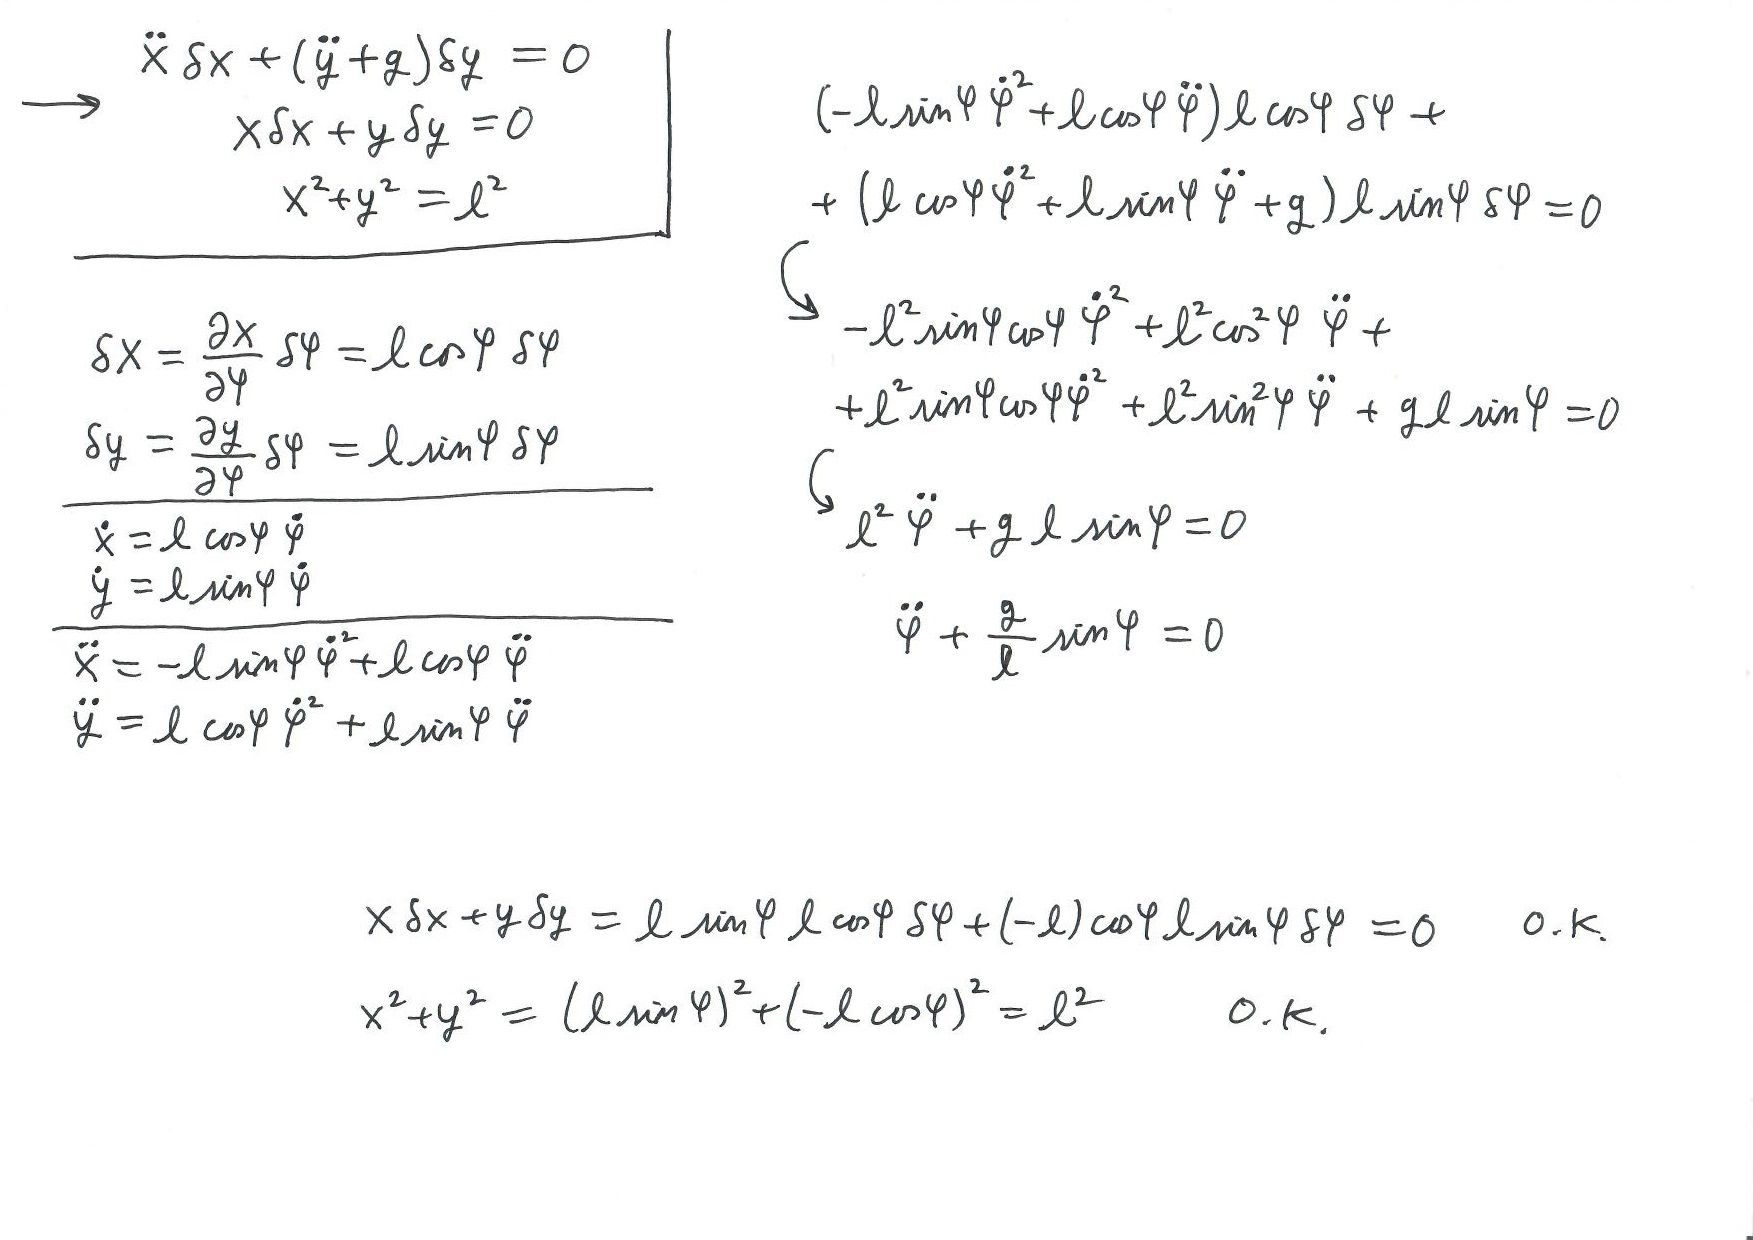 ẍ δx + (ÿ+g)δy = 0
→
xδx + yδy = 0
x²+y² = l²
δx = ∂x/∂φ δφ = l cosφ δφ
δy = ∂y/∂φ δφ = l sinφ δφ
ẋ = l cosφ φ̇
ẏ = l sinφ φ̇
ẍ = -l sinφ φ̇² + l cosφ φ̈
ÿ = l cosφ φ̇² + l sinφ φ̈
(-l sinφ φ̇² + l cosφ φ̈) l cosφ δφ +
+ (l cosφ φ̇² + l sinφ φ̈ + g) l sinφ δφ = 0
-l² sinφ cosφ φ̇² + l² cos²φ φ̈ +
+ l² sinφ cosφ φ̇² + l² sin²φ φ̈ + g l sinφ = 0
l² φ̈ + g l sinφ = 0
φ̈ + g/l sinφ = 0
x δx + y δy = l sinφ l cosφ δφ + (-l) cosφ l sinφ δφ = 0 O.K.
x²+y² = (l sinφ)² + (-l cosφ)² = l² O.K.